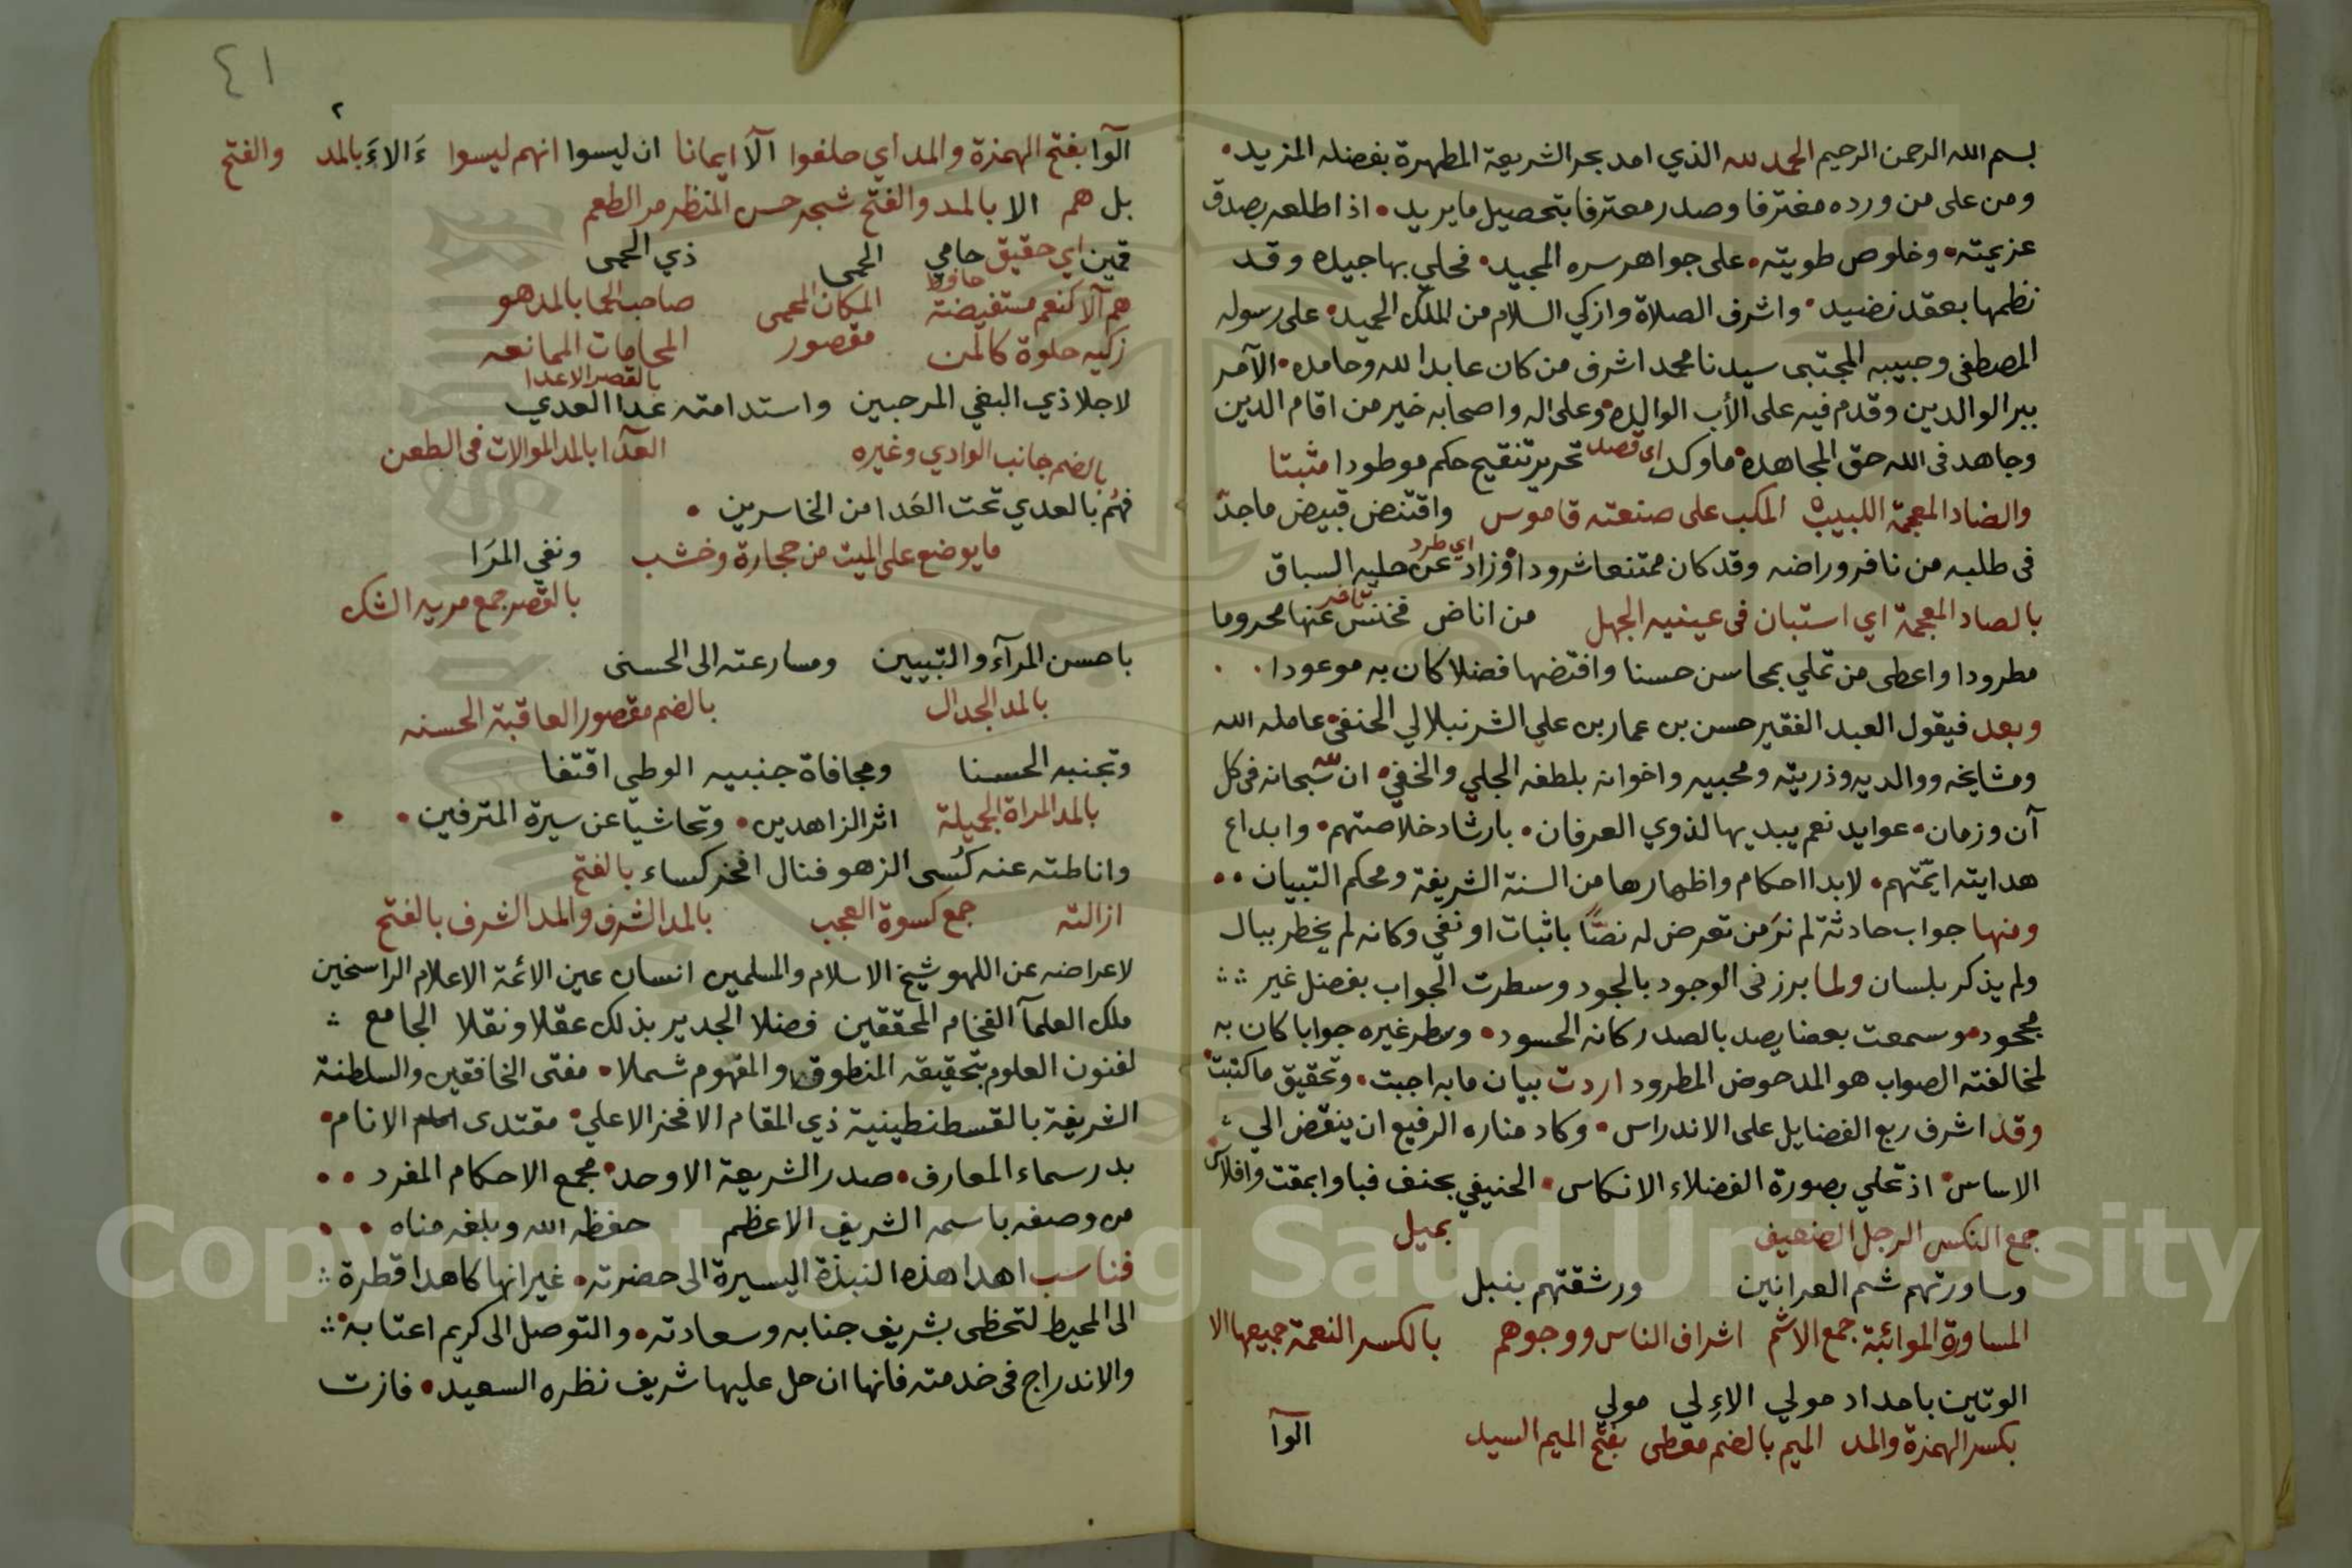 بسم الله الرحمن الرحيم الحمد لله الذي امد بحر الشريعة المطهرة بفضله المزيد
ومن على من ورده مغترفا وصدر معترفا بتحصيل ما يريد اذا طلعه بصدق
عزيمته وخلوص طويته على جواهر سره المجيد فحلي بها جيده وقد
نظمها بعقد نضيد واشرف الصلاة وازكي السلام من الملك الحميد على رسوله
المصطفى وحبيبه المجتبى سيدنا محمد اشرف من كان عابدا لله وحامده الآمر
ببر الوالدين وقدم فيه على الأب الوالده وعلى اله واصحابه خير من اقام الدين
وجاهد في الله حق المجاهده ما وكد اى قصد تحرير تنقيح حكم موطودا مثبتا
والضاد المعجمة اللبيب المكب على صنعته قاموس واقتنص قبيض ماجد
في طلبه من نافر وراضه وقد كان ممتنعا شرودا وزاد اي طرد عن حلبه السباق
بالصاد المعجمة اي استبان في عينيه الجهل من اناض فخنس تاخر عنها محروما
مطرودا واعطى من تملي بمحاسن حسنا وافتضها فضلا كان به موعودا
وبعد فيقول العبد الفقير حسن بن عمار بن علي الشرنبلالي الحنفي عامله الله
ومشايخه ووالديه وذريته ومحبيه واخوانه بلطفه الجلي والخفي ان لله سبحانه في كل
آن وزمان عوايد نعم يبديها لذوي العرفان بارشاد خلاصتهم وابداع
هدايته ايمتهم لابدا احكام واظهارها من السنة الشريفة ومحكم التبيان
ومنها جواب حادثة لم نر من تعرض له نصا باثبات او نفي وكانه لم يخطر ببال
ولم يذكر بلسان ولما برز في الوجود بالجود وسطرت الجواب بفضل غير
مجحود وسمعت بعضا يصد بالصدر كانه الحسود وسطر غيره جوابا كان به
لمخالفته الصواب هو المدحوض المطرود اردت بيان ما به اجبت وتحقيق ما كتبت
وقد اشرف ربع الفضايل على الاندراس وكاد مناره الرفيع ان ينقض الي
الاساس اذ تملي بصورة الفضلاء الانكاس الحنيفي بحنف فباوا بمقت وافلاس
جمع النكس الرجل الضعيف بميل
وساورتهم شم العرانين ورشقتهم بنبل
المساورة المواثبة جمع الاشم اشراف الناس ووجوهم بالكسر النعمة جميعها الا
الوتين بامداد مولي الاِلي مولي
بكسر الهمزة والمد الميم بالضم معطى بفتح الميم السيد
الوآ
٤١
٢
الآوا بفتح الهمزة والمد اي حلفوا الآ ايمانا ان ليسوا انهم ليسوا ءَالاءَ بالمد والفتح
بل هم الا بالمد والفتح شجر حسن المنظر مر الطعم
قمين اي حقيق حامي الحمى ذي الحمى
هم آلآ كنعم مستفيضة حافظ المكان المحمى صاحب الحما بالمد هو
زكيه حلوة كالمن مقصور المحامات الممانعه
لاجلا ذي البغي المرجبين واستدامته عدا العدي بالقصر الاعدا
بالضم جانب الوادي وغيره العدا بالمد الموالات في الطعن
فهم بالعدي تحت العدا من الخاسرين
ما يوضع على الميت من حجارة وخشب ونفي المرا
بالقصر جمع مريه الشك
باحسن المرآء والتبيين ومسارعته الى الحسنى
بالمد الجدال بالضم مقصور العاقبة الحسنه
وتجنبه الحسنا ومجافاة جنبيه الوطي اقتفا
بالمد المراة الجميلة اثر الزاهدين وتحاشيا عن سيرة المترفين
واناطته عنه كُسى الزهو فنال افخر كساء بالفتح
ازالته جمع كسوة العجب بالمد الشرف والمد الشرف بالفتح
لاعراضه عن اللهو شيخ الاسلام والمسلمين انسان عين الائمة الاعلام الراسخين
ملك العلمآ الفخام المحققين فضلا الجدير بذلك عقلا ونقلا الجامع
لفنون العلوم بتحقيقه المنطوق والمفهوم شملا مفتى الخافقين والسلطنة
الشريفة بالقسطنطينية ذي المقام الافخر الاعلي مقتدى الانام
بدر سماء المعارف صدر الشريعة الاوحد مجمع الاحكام المفرد
من وصفه باسمه الشريف الاعظم حفظه الله وبلغه مناه
فناسب اهدا هذه النبذة اليسيرة الى حضرته غير انها كاهدا قطرة
الى المحيط لتحظى بشريف جنابه وسعادته والتوصل الى كريم اعتابه
والاندراج في خدمته فانها ان حل عليها شريف نظره السعيد فازت
Copyright © King Saud University